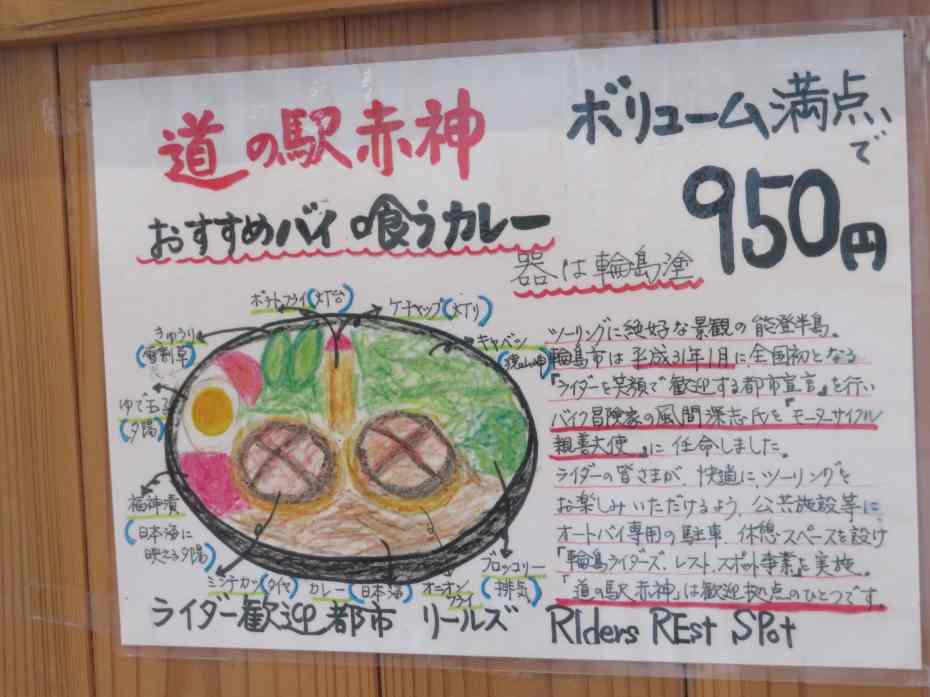 道の駅赤神
ボリューム満点、
で
950円
おすすめバイ喰うカレー
器は輪島塗
ポテトフライ(灯台)
ケチャップ(灯り)
きゅうり
(雪割草)
キャベツ
ゆで玉子
(夕陽)
福神漬
(日本海に
映える夕陽)
ミンチカツ(タイヤ)
カレー(日本海)
オニオン
フライ
ブロッコリー
(排気)
ツーリングに絶好な景観の能登半島。
輪島市は平成31年1月に全国初となる
『ライダーを笑顔で歓迎する都市宣言』を行い
バイク冒険家の風間深志氏を『モーターサイクル
親善大使』に任命しました。
ライダーの皆さまが、快適にツーリングを
お楽しみいただけるよう、公共施設等に
オートバイ専用の駐車、休憩スペースを設け
『輪島ライダーズ、レスト、スポット事業』を実施。
「道の駅赤神」は歓迎拠点のひとつです。
ライダー歓迎都市 リールズ RIders REst SPot